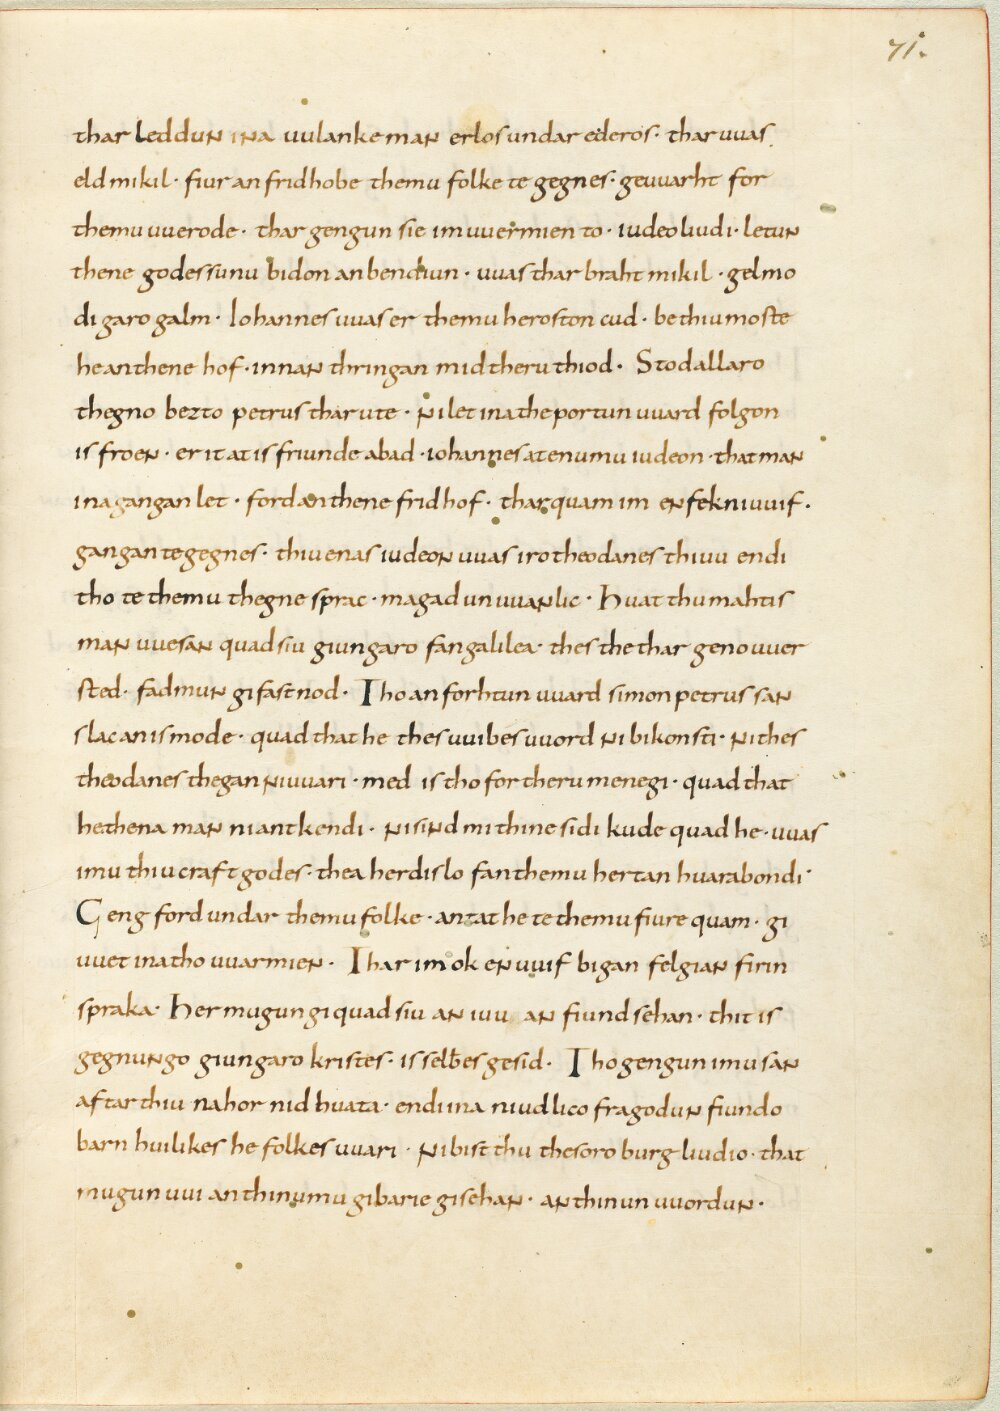 71.
thar leddun ina uulanke man erlos undar ederos· thar uuas
eld mikil· fiur an fridhobe themu folke te gegnes· geuuarht for
themu uuerode· thar gengun sie im uuermien to· iudeo liudi· letun
thene godes sunu bidon an bendiun· uuas thar braht mikil· gelmo
di garo galm· Iohannes uuas er themu heroston cud· be thiu moste
he an thene hof· innan thringan mid theru thiod· Stod allaro
thegno bezto petrus thar ute· ni let ina the portun uuard folgon
is froen· er it at is friunde abad· iohannes at enumu iudeon· that man
ina gangan let· ford an thene fridhof· thar quam im en fekni uuif·
gangan te gegnes· thiu enas iudeon uuas iro theodanes thiuu endi
tho te themu thegne sprac· magad unuuanlic· Huat thu mahtis
man uuesan quad siu giungaro fan galilea· thes the thar genouuer
sted· fadmun gifastnod· Tho an forhtun uuard simon petrus san
slac an is mode· quad that he thes uuibes uuord ni bikonsti· ni thes
theodanes thegan ni uuari· med is tho for theru menegi· quad that
he thena man ni antkendi· ni sind mi thine sidi kude quad he· uuas
imu thiu craft godes· thea herdislo fan themu hertan huarabondi·
Geng ford undar themu folke· antat he te themu fiure quam· gi
uuet ina tho uuarmien· Thar im ok en uuif bigan felgian firin
spraka· Her mugun gi quad siu an iuu an fiund sehan· thit is
gegnungo giungaro kristes· is selƀes gesid· Tho gengun imu san
aftar thiu nahor nid huata· endi ina niudlico fragodun fiundo
barn huilikes he folkes uuari· ni bist thu thesoro burg liudio· that
mugun uui an thinumu gibarie gisehan· an thinun uuordun·